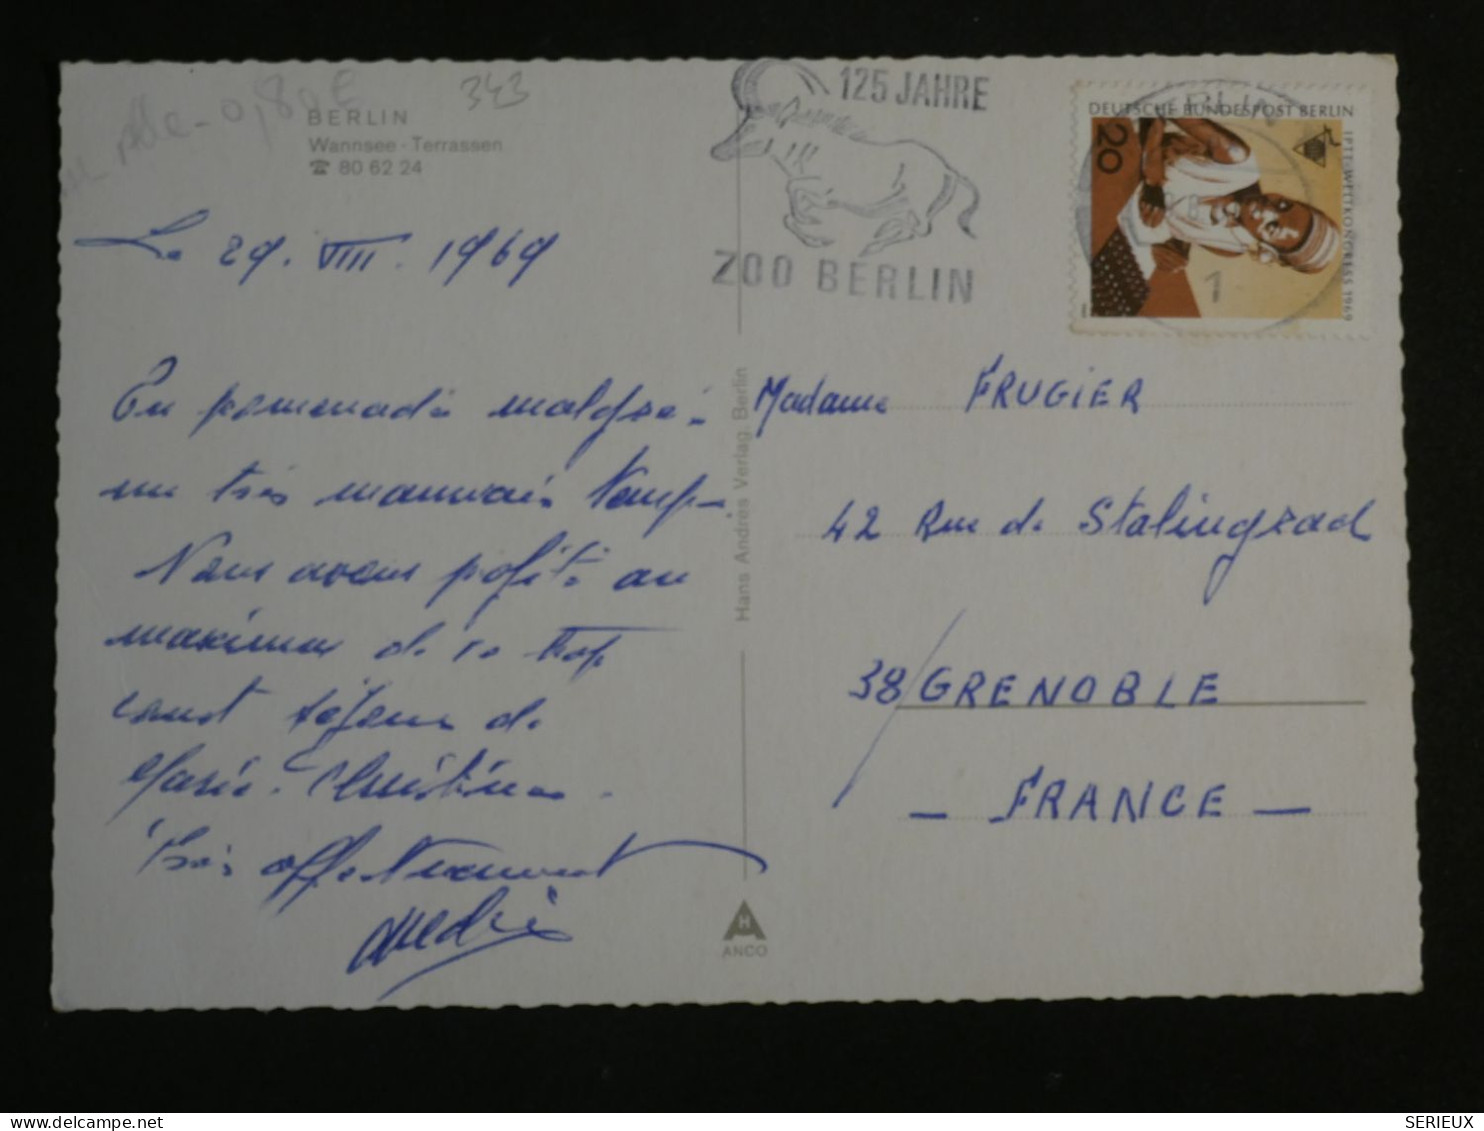 343
BERLIN
Wannsee - Terrassen
☎ 80 62 24
125 JAHRE
ZOO BERLIN
DEUTSCHE BUNDESPOST BERLIN
20
IPTT-WELTKONGRESS 1969
1
Le 29. VIII. 1969
En promenade malgré
un très mauvais temps
Nous avons profité au
maximum de ce trop
court séjour de
Marie-Christine.
Très affectueusement
Madame FRUGIER
42 Rue de Stalingrad
38/GRENOBLE
- FRANCE -
Hans Andres Verlag, Berlin
H
ANCO
SERIEUX
delcampe.net